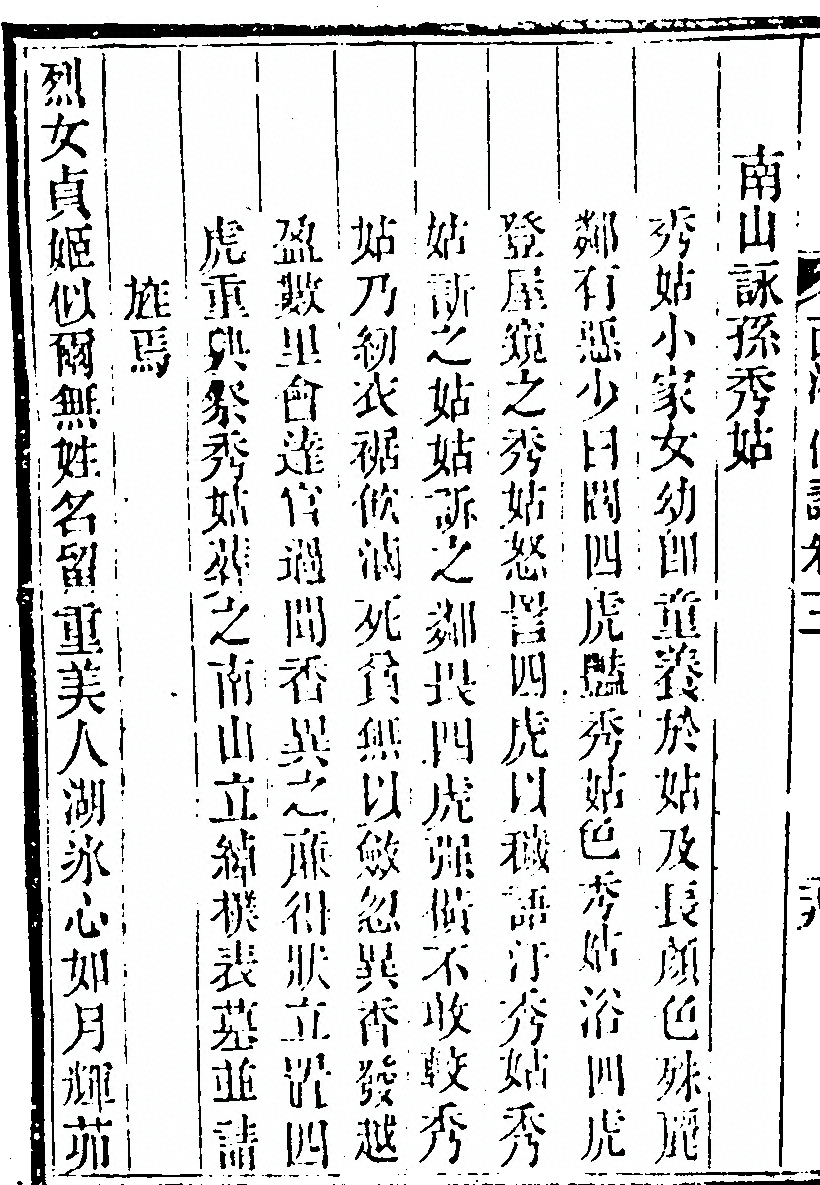 南山詠孫秀姑
秀姑小家女幼卽童養於姑及長顔色殊麗
鄰有惡少曰閻四虎豔秀姑色秀姑浴四虎
登屋窺之秀姑怒詈四虎以穢語汙秀姑秀
姑訴之姑姑訴之鄰畏四虎强僨不敢較秀
姑乃紉衣裾飲滷死貧無以斂忽異香發越
盈數里會達官過聞香異之廉得狀立置四
虎重典祭秀姑葬之南山立綽楔表墓並請
旌焉
烈女貞姬似爾無姓名留重美人湖冰心如月輝茆